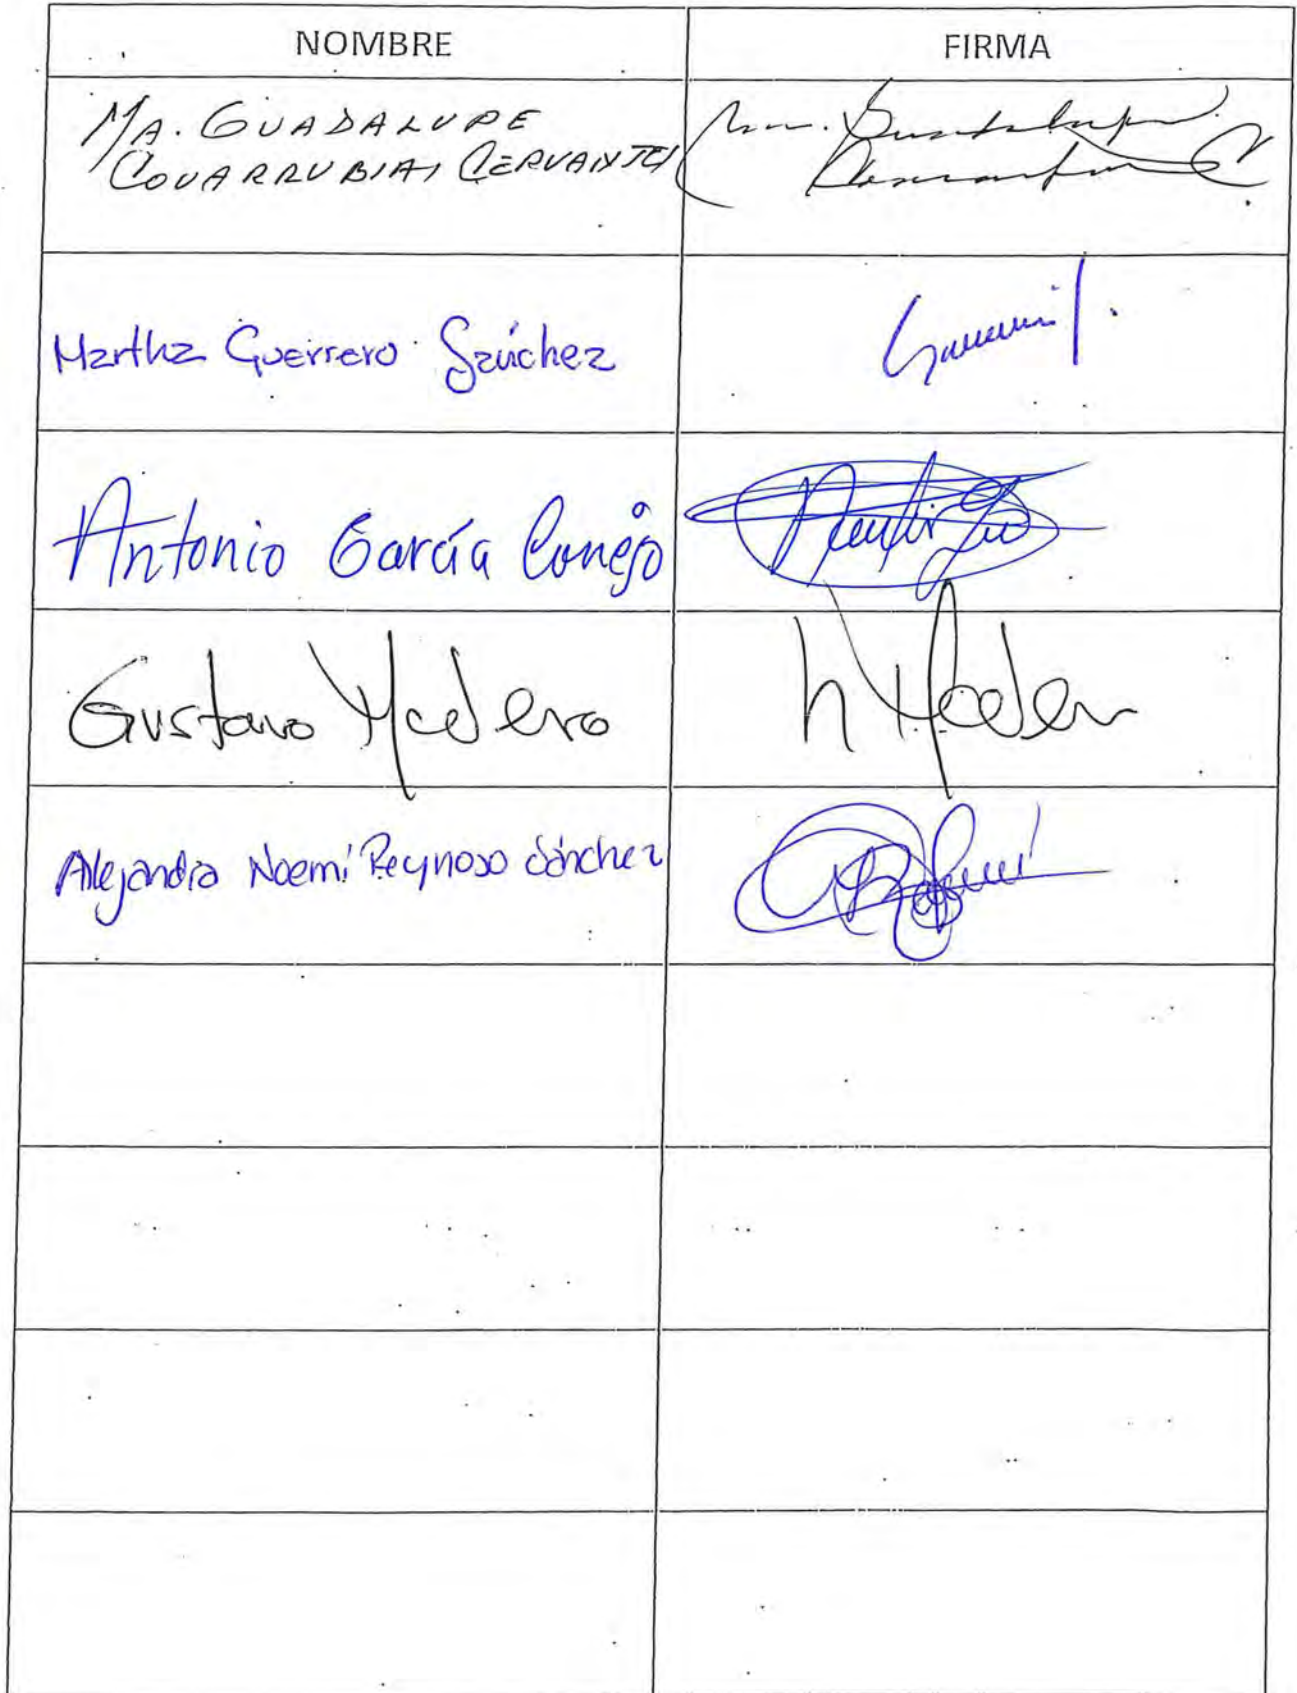 NOMBRE FIRMA
MA. GUADALUPE
COVARRUBIAS CERVANTES
Martha Guerrero Sánchez
Antonio García Conejo
Gustavo Madero
Alejandra Noemí Reynoso Sánchez